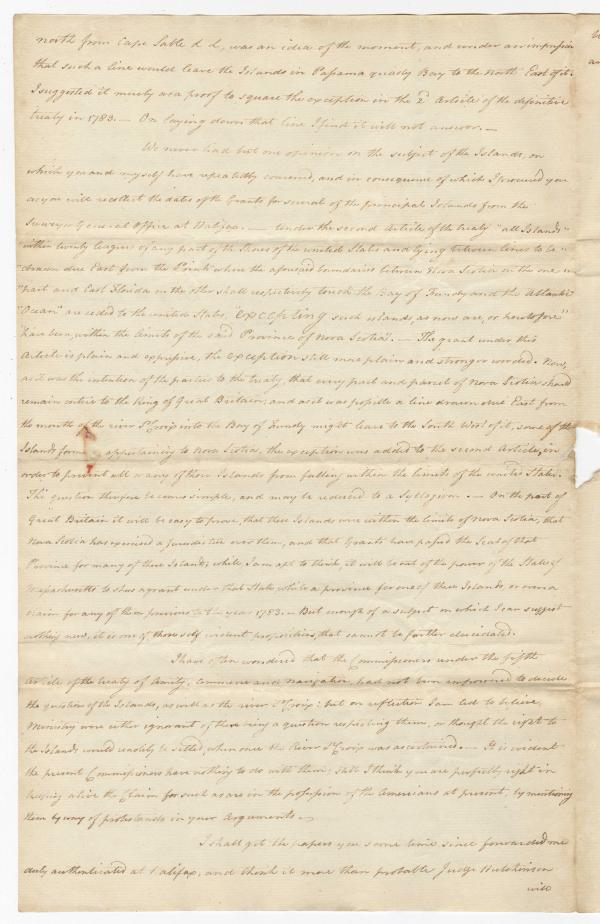 north from Cape Sable &c &c, was an idea of the moment, and under an impression
that such a line would leave the Islands in Passamaquady Bay to the North East of it.
I suggested it merely as a proof to square the exception in the 2d Article of the definitive
treaty in 1783. — On laying down that line I find it will not answer. —
We never had but one opinion on the subject of the Islands, on
which you and myself have repeatedly conversed, and in consequence of which I procured you
as you will recollect the dates of the Grants for several of the principal Islands from the
Surveyor General Office at Halifax. — Under the second Article of the treaty "all Islands"
"within twenty leagues of any part of the Shores of the united States and lying between lines to be"
"drawn due East from the Points where the aforesaid boundaries between Nova Scotia on the one"
"part and East Florida on the other shall respectively touch the Bay of Fundy and the Atlantic"
"Ocean" are ceded to the united States, "excepting such islands, as now are, or heretofore"
"have been, within the limits of the said Province of Nova Scotia". — The grant under this
Article is plain and expressive, the exception still more plain and stronger worded. Now,
as it was the intention of the parties to the treaty, that every part and parcel of Nova Scotia should
remain entire to the King of Great Britain, and as it was possible a line drawn due East from
the mouth of the river St Croix into the Bay of Fundy might leave to the South West of it, some of the
Islands appertaining to Nova Scotia, the exception was added to the second Article, in
order to prevent all or any of those Islands from falling within the limits of the united States.
The question therefore becomes simple, and may be reduced to a Syllogism. — On the part of
Great Britain it will be easy to prove, that these Islands were within the limits of Nova Scotia, that
Nova Scotia has exercised a jurisdiction over them, and that Grants have passed the Seal of that
Province for many of these Islands; while, I am apt to think, it will be out of the power of the State of
Massachusetts to shew a grant under that State while a province for one of these Islands, or even a
claim for any of them previous to the year 1783. — But enough of a subject on which I can suggest
nothing new, it is one of those self evident propositions, that cannot be further elucidated.
I have often wondered that the Commissioners under the fifth
Article of the treaty of Amity, Commerce and Navigation, had not been empowered to decide
the question of the Islands, as well as the river St Croix: but on reflection I am led to believe,
Ministry were either ignorant of there being a question respecting them, or thought the right to
the Islands would readily be settled, when once the River St Croix was ascertained. — It is evident
the present Commissioners have nothing to do with them; still I think you are perfectly right in
keeping alive the Claim for such as are in the possession of the Americans at present, by mentioning
them by way of protestando in your Arguments. —
I shall get the papers you some time since forwarded me
duly authenticated at Halifax, and think it more than probable Judge Hutchinson
will